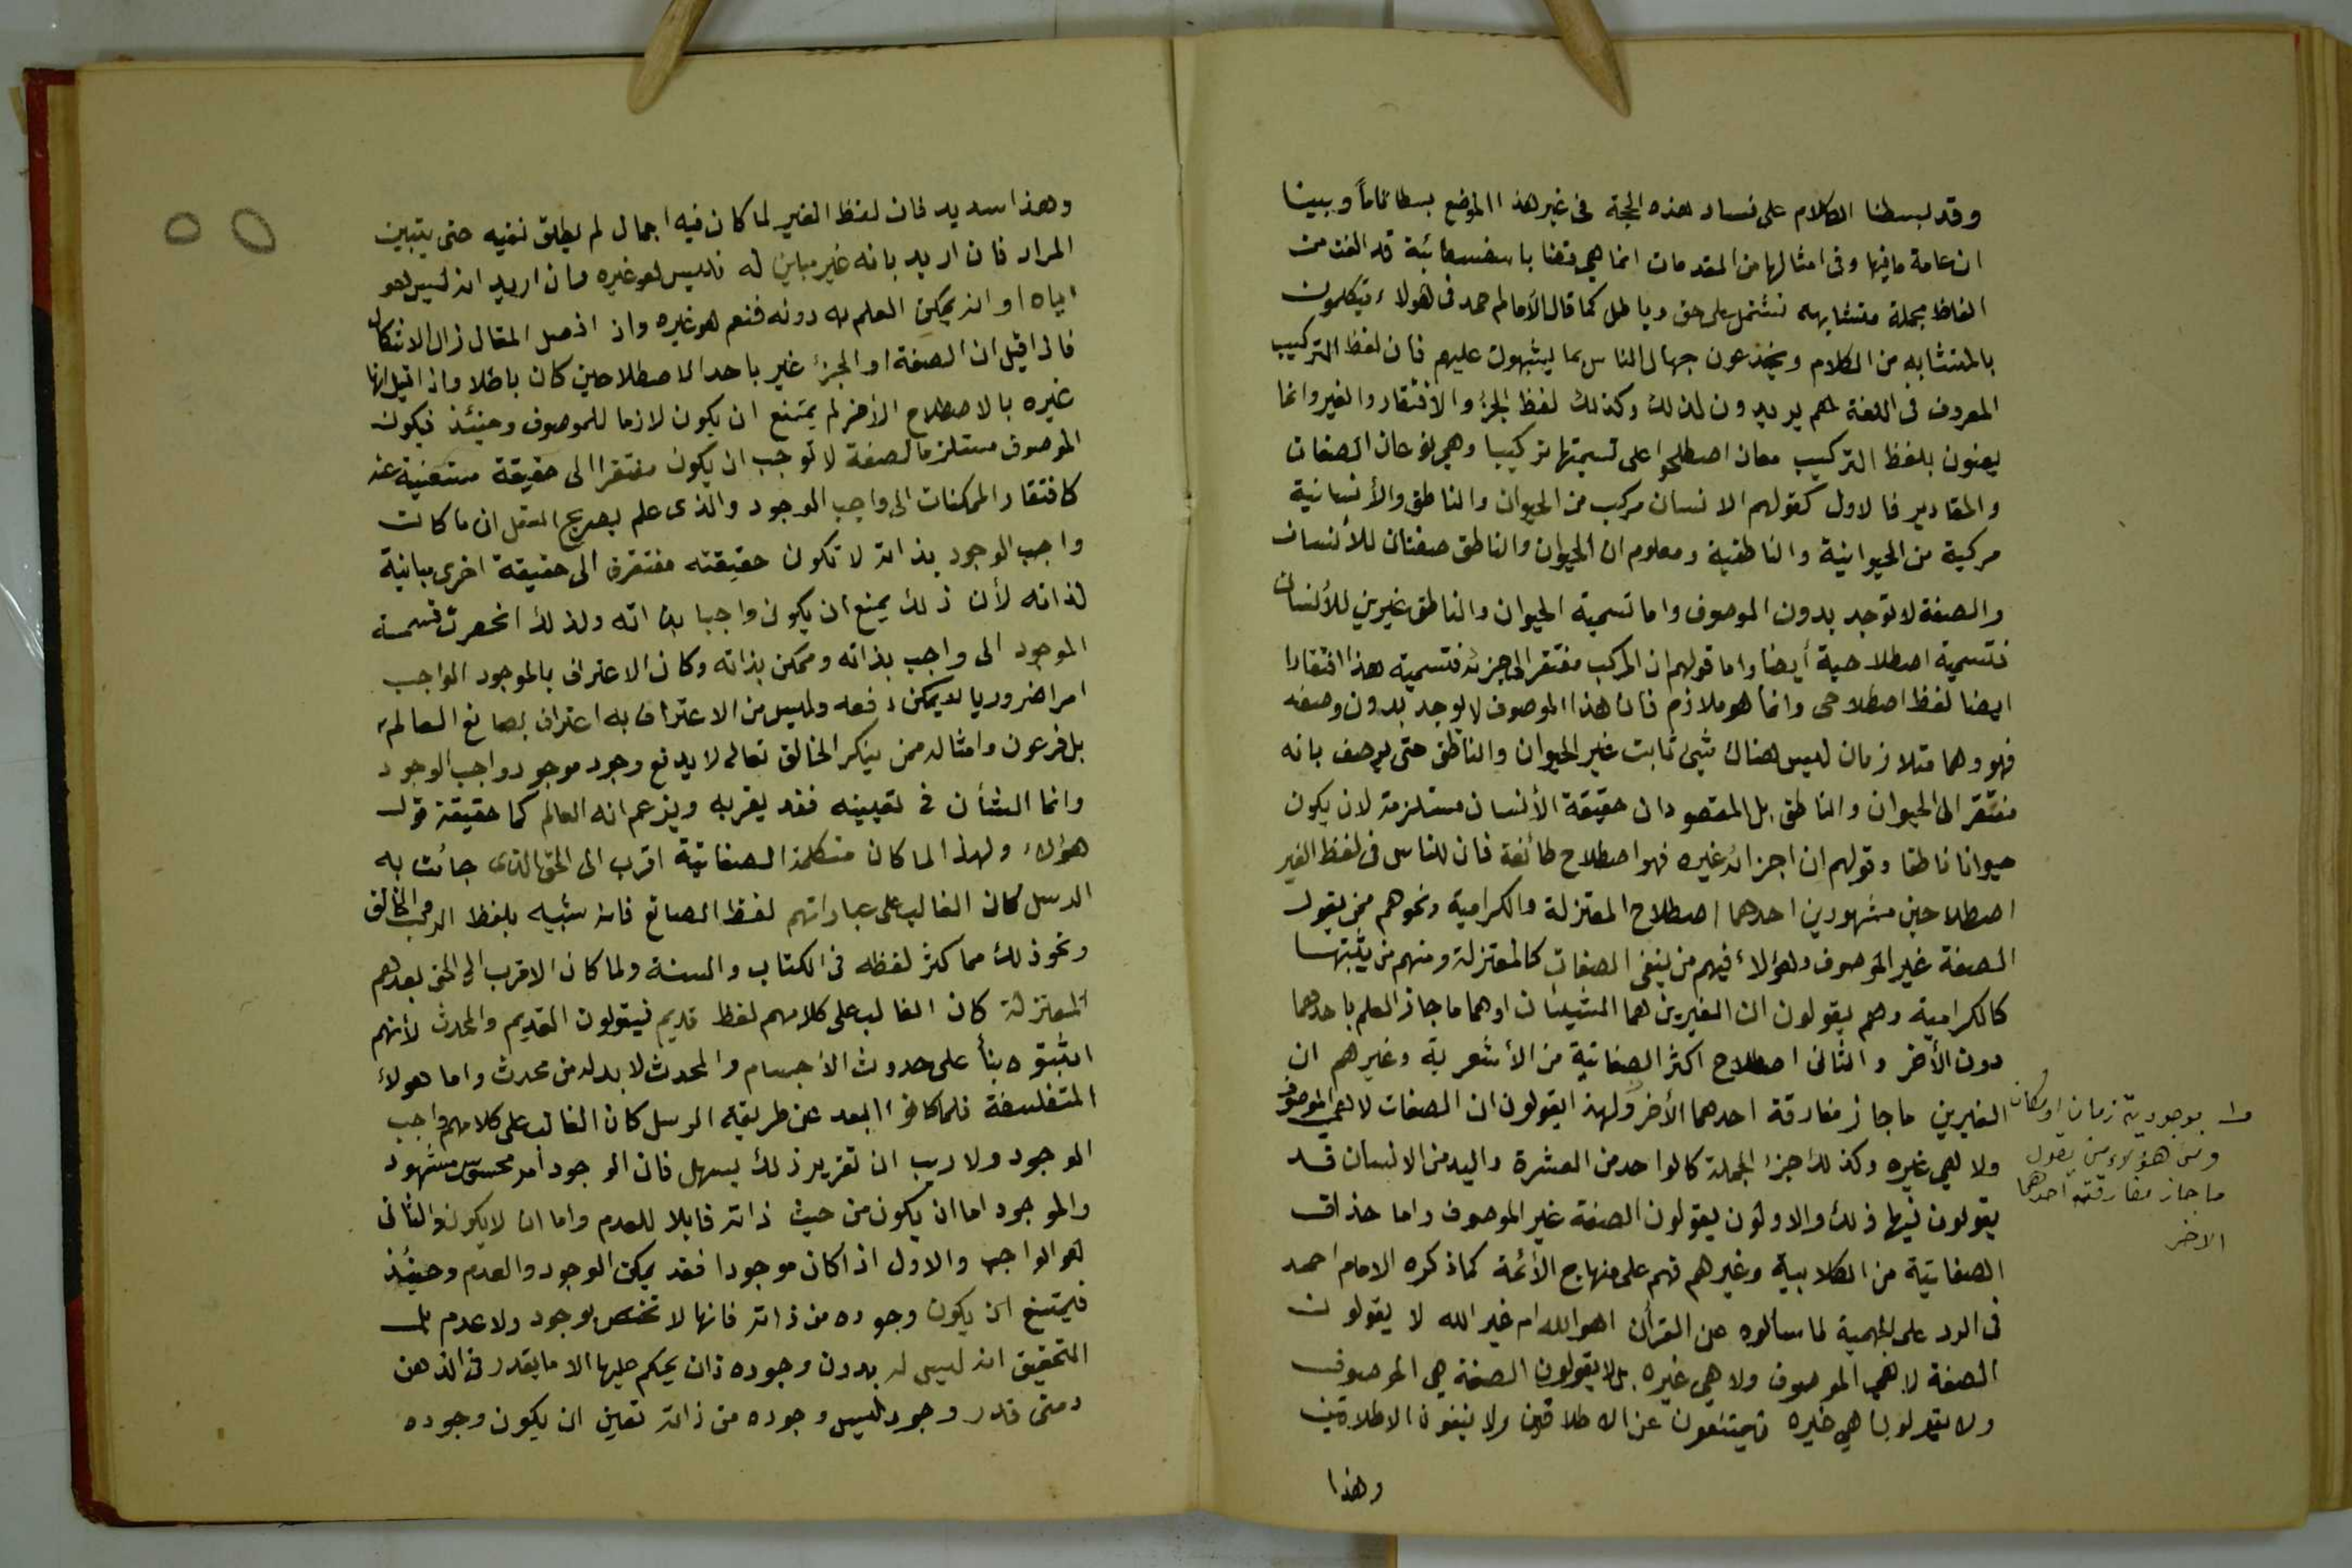 وقد بسطنا الكلام على فساد هذه الحجة في غير هذا الموضع بسطا تاماً وبينا
ان عامة ما فيها وفي امثالها من المقدمات انما هي قضايا سفسطائية قد الفت من
الفاظ مجملة متشابهه تشتمل على حق وباطل كما قال الأمام احمد في هولاء يتكلمون
بالمتشابه من الكلام ويخدعون جهال الناس بما يشبهون عليهم فان لفظ التركيب
المعروف في اللغة هم يريدون لذلك وكذلك لفظ الجزء والافتقار والغير وانما
يعنون بلفظ التركيب معان اصطلحوا على تسميتها تركيبا وهي نوعان الصفات
والمقادير فالاول كقولهم الانسان مركب من الحيوان والناطق والأنسانية
مركبة من الحيوانية والناطقية ومعلوم ان الحيوان والناطق صفتان للأنسان
والصفة لا توجد بدون الموصوف واما تسمية الحيوان والناطق غيرين للأنسان
فتسمية اصطلاحية أيضا واما قولهم ان المركب مفتقر الى جزئه فتسمية هذا افتقارا
ايضا لفظ اصطلاحى وانما هو ملازم فان هذا الموصوف لا يوجد بدون وصفه
فهو وهما متلازمان ليس هناك شيئ ثابت غير الحيوان والناطق حتى يوصف بانه
مفتقر الى الحيوان والناطق بل المقصود ان حقيقة الأنسان مستلزمة لان يكون
حيوانا ناطقا وقولهم ان اجزائه غيره فهو اصطلاح طائفة فان للناس في لفظ الغير
اصطلاحين مشهورين احدهما اصطلاح المعتزلة والكرامية ونحوهم ممن يقول
الصفة غير الموصوف وهؤلاء فيهم من ينفي الصفات كالمعتزلة ومنهم من يثبتها
كالكرامية وهم يقولون ان الغيرين هما الشيئان او هما ما جاز العلم باحدهما
دون الأخر والثاني اصطلاح اكثر الصفاتية من الأشعرية وغيرهم ان
الغيرين ما جاز مفارقة احدهما الأخر ولهذا يقولون ان الصفات لا هي الموصوف
ولا هي غيره وكذلك جزء الجملة كالواحد من العشرة واليد من الانسان قد
يقولون فيها ذلك والاولون يقولون الصفة غير الموصوف واما حذاق
الصفاتية من الكلابية وغيرهم فهم على منهاج الأئمة كما ذكره الامام احمد
في الرد على الجهمية لما سألوه عن القرأن اهو الله ام غير الله لا يقولون
الصفة لا هي الموصوف ولا هي غيره بل لا يقولون الصفة هي الموصوف
ولا يقولون هي غيره فيمتنعون عن الاطلاقين ولا ينفون الاطلاقين
وهذا
بوجود يه زمان او مكان
ومن هؤلاء من يقول
ما جاز مفارقة احدهما
الاخر
وهذا سديد فان لفظ الغير لما كان فيه اجمال لم يطلق نفيه حتى يتبين
المراد فان اريد بانه غير مباين له فليس هو غيره وان اريد انه ليس هو
اياه او انه يمكن العلم به دونه فنعم هو غيره واذا فصل المقال زال الاشكال
فاذا قيل ان الصفة او الجزء غير باحد الاصطلاحين كان باطلا واذا قيل انها
غيره بالاصطلاح الأخر لم يمتنع ان يكون لازما للموصوف وحينئذ فيكون
الموصوف مستلزما لصفة لا توجب ان يكون مفتقرا الى حقيقة مستغنية عنه
كافتقار الممكنات الى واجب الوجود والذى علم بصريح العقل ان ما كان
واجب الوجود بذاته لا تكون حقيقته مفتقرة الى حقيقة اخرى مباينة
لذاته لأن ذلك يمنع ان يكون واجبا بذاته ولذلك انحصرت قسمة
الموجود الى واجب بذاته وممكن بذاته وكان الاعتراف بالموجود الواجب
امرا ضروريا لا يمكن دفعه وليس من الاعتراف به اعتراف بصانع العالم
بل فرعون وامثاله ممن ينكر الخالق تعالى لا يدفع وجود موجود واجب الوجود
وانما الشأن في تعيينه فقد يقر به ويزعم انه العالم كما حقيقة قول
هؤلاء ولهذا لما كان متكلمة الصفاتية اقرب الى الحق الذى جائت به
الرسل كان الغالب على عباراتهم لفظ الصانع فانه شبيه بلفظ الرب الخالق
ونحو ذلك مما كثر لفظه في الكتاب والسنة ولما كان الاقرب الى الحق بعدهم
المعتزلة كان الغالب على كلامهم لفظ قديم فيقولون القديم والمحدث لأنهم
اثبتوه بنأ على حدوث الاجسام والمحدث لا بد له من محدث واما هولاء
المتفلسفة فلما كانوا ابعد عن طريقة الرسل كان الغالب على كلامهم واجب
الوجود ولا ريب ان تقرير ذلك يسهل فان الوجود أمر محسوس مشهود
والموجود اما ان يكون من حيث ذاته قابلا للعدم واما ان لا يكون والثاني
هو الواجب والاول اذا كان موجودا فقد يمكن الوجود والعدم وحينئذ
فيمتنع ان يكون وجوده من ذاته فانها لا تختص بوجود ولا عدم بل
التحقيق انه ليس له بدون وجوده ذات يحكم عليها الا ما يقدر في الذهن
ومتى قدر وجود ليس وجوده من ذاته تعين ان يكون وجوده